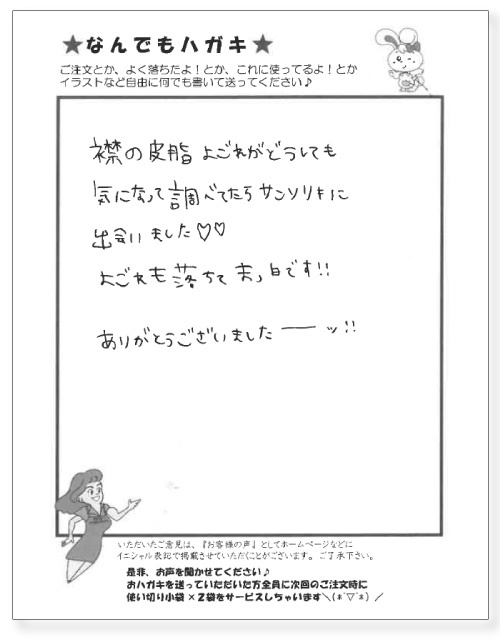 ★なんでもハガキ★
ご注文とか、よく落ちたよ！とか、これに使ってるよ！とか
イラストなど自由に何でも書いて送ってください♪
襟の皮脂よごれがどうしても
気になって調べてたらサンソリキに
出会いました♡♡
よごれも落ちてまっ白です!!
ありがとうございました――ッ!!
いただいたご意見は、『お客様の声』としてホームページなどに
イニシャル表記で掲載させていただくことがございます。ご了承下さい。
是非、お声を聞かせてください♪
おハガキを送っていただいた方全員に次回のご注文時に
使い切り小袋×2袋をサービスしちゃいます＼(*ˊ▽ˋ*)／